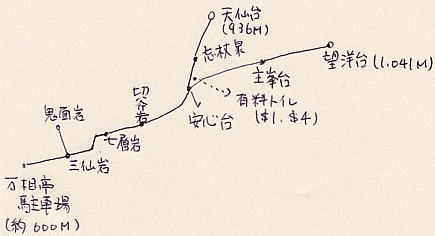 天仙台
(936M)
忘杖泉
望洋台 (1.041M)
主峯台
有料トイレ
($1.$4)
安心台
鬼面岩
七層岩
三仙岩
万相亭
駐車場
(約 600M)